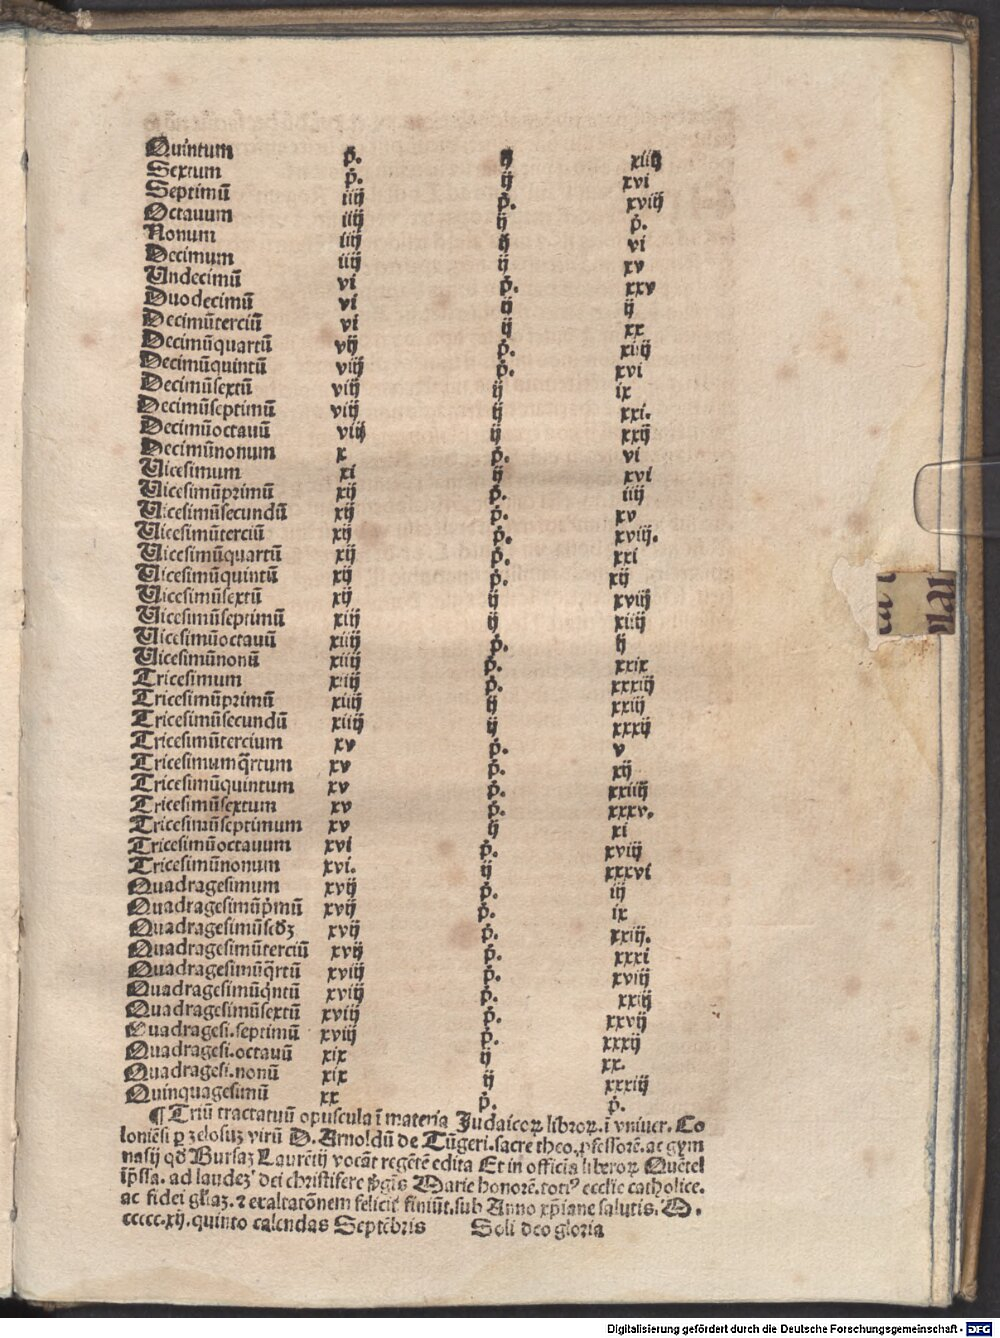 Quintum p̄. ij xiiij
Sextum p̄. ij xvi
Septimū iiij p̄. xviij
Octauum iiij ij p̄.
Nonum iiij ij vi
Decimum iiij ij xv
Undecimū vi p̄. xxv
Duodecimū vi ij ij
Decimūterciū vi ij xx
Decimūquartū vij p̄. xiiij
Decimūquintū viij p̄. xvi
Decimūsextū viij ij ix
Decimūseptimū viij ij xxi.
Decimūoctauū viij ij xxij
Decimūnonum x p̄. vi
Uicesimum xi ij xvi
Uicesimūprimū xij p̄. iiij
Uicesimūsecundū xij p̄. xv
Uicesimūterciū xij p̄. xviij.
Uicesimūquartū xij p̄. xxi
Uicesimūquintū xij p̄. xij
Uicesimūsextū xij ij xviij
Uicesimūseptimū xiij ij xiiij
Uicesimūoctauū xiiij p̄. ij
Uicesimūnonū xiiij p̄. xxix
Tricesimum xiiij p̄. xxxiij
Tricesimūprimū xiiij ij xxiij
Tricesimūsecundū xiiij ij xxxij
Tricesimūtercium xv p̄. v
Tricesimumq̄rtum xv p̄. xij
Tricesimūquintum xv p̄. xxiiij
Tricesimūsextum xv p̄. xxxv.
Tricesimūseptimum xv ij xi
Tricesimūoctauum xvi p̄. xviij
Tricesimūnonum xvi. ij xxxvi
Quadragesimum xvij p̄. iij
Quadragesimūp̄mū xvij p̄. ix
Quadragesimūscd̄ꝫ xvij p̄. xxiij.
Quadragesimūterciū xvij p̄. xxxi
Quadragesimūq̄rtū xviij p̄. xviij
Quadragesimūq̄ntū xviij p̄. xxiij
Quadragesimūsextū xviij p̄. xxvij
Quadragesi.septimū xviij p̄. xxxij
Quadragesi.octauū xix ij xx.
Quadragesi.nonū xix ij xxxiij
Quinquagesimū xx p̄. p̄.
¶ Triū tractatuū opuscula ī materia Judaicoꝝ libroꝝ. ī vniuer. Co
loniēsi ꝑ zelosuꝫ virū D. Arnoldū de Tūgeri. sacre theo. ꝓfessorē. ac gym
nasij qd̄ Bursaꝫ Laurētij vocāt regētē edita Et in officia liberoꝝ Quētel
īp̄ssa. ad laudeꝫ dei christifere ꝟgīs Marie honorē. totiꝰ ecclie catholice.
ac fidei gl̄iaꝫ. ⁊ exaltatōnem felicit̄ finiūt. sub Anno xp̄iane salutis. M.
ccccc.xij. quinto calendas Septēbris Soli deo gloria
Digitalisierung gefördert durch die Deutsche Forschungsgemeinschaft - DFG